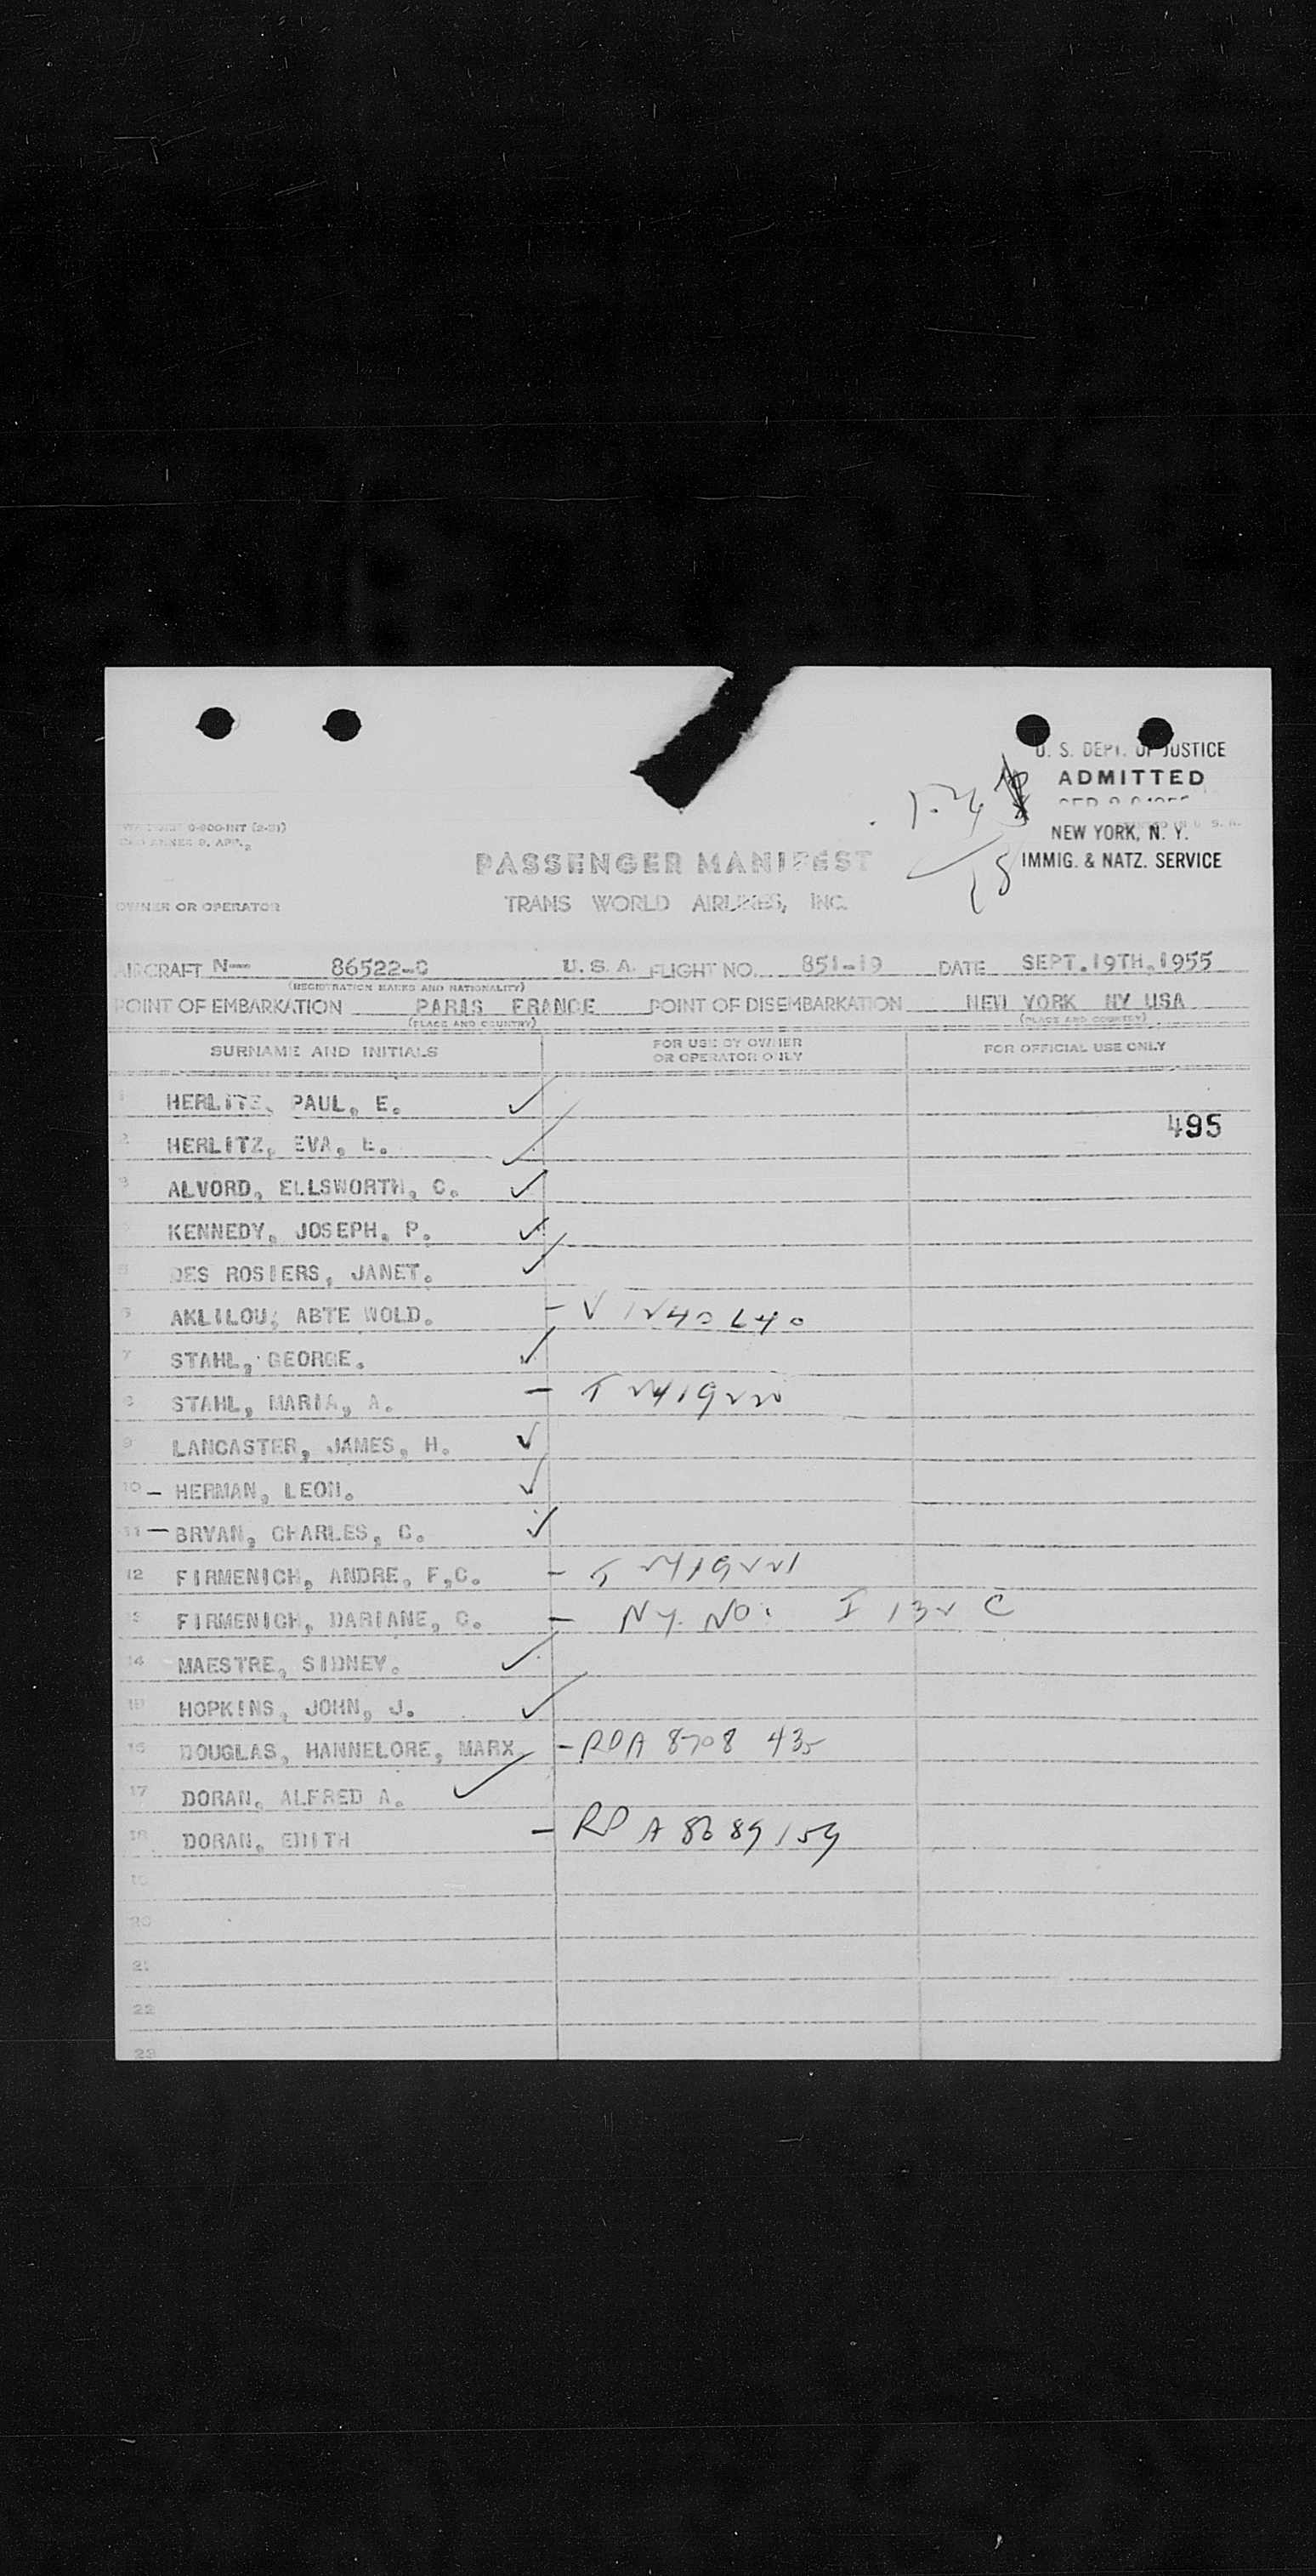 U. S. DEPT. OF JUSTICE
ADMITTED
NEW YORK, N. Y.
IMMIG. & NATZ. SERVICE
PASSENGER MANIFEST
TRANS WORLD AIRLINES, INC.
OWNER OR OPERATOR
AIRCRAFT N— 86522-C U. S. A. FLIGHT NO. 851-19 DATE SEPT.19TH,1955
(REGISTRATION MARKS AND NATIONALITY)
POINT OF EMBARKATION PARIS FRANCE POINT OF DISEMBARKATION NEW YORK NY USA
(PLACE AND COUNTRY) (PLACE AND COUNTRY)
SURNAME AND INITIALS FOR USE BY OWNER OR OPERATOR ONLY FOR OFFICIAL USE ONLY
1 HERLITZ, PAUL, E. ✓
495
2 HERLITZ, EVA, E. ✓
3 ALVORD, ELLSWORTH, C. ✓
4 KENNEDY, JOSEPH, P. ✓
5 DES ROSIERS, JANET. ✓
6 AKLILOU, ABTE WOLD. –
7 STAHL, GEORGE. ✓
8 STAHL, MARIA, A. –
9 LANCASTER, JAMES, H. ✓
10 – HERMAN, LEON. ✓
11 – BRYAN, CHARLES, C. ✓
12 FIRMENICH, ANDRE, F,C. –
13 FIRMENICH, DARIANE, C. – NY. NO.
14 MAESTRE, SIDNEY. ✓
15 HOPKINS, JOHN, J. ✓
16 DOUGLAS, HANNELORE, MARX – RPA 8708 435
17 DORAN, ALFRED A. ✓
18 DORAN, EDITH – RP A 8689159
19
20
21
22
23